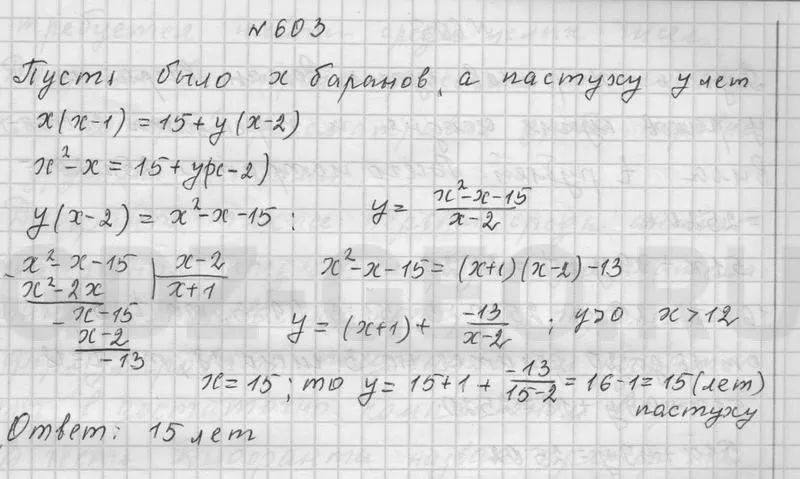 №603
Пусть было x баранов, а пастуху y лет
x(x-1) = 15 + y(x-2)
x² - x = 15 + y(x-2)
y(x-2) = x² - x - 15 ; y = (x² - x - 15)/(x-2)
x² - x - 15 | x-2
x² - 2x | x+1
x - 15
x - 2
-13
x² - x - 15 = (x+1)(x-2) - 13
y = (x+1) + (-13)/(x-2) ; y>0 x>12
x = 15 ; то y = 15 + 1 + (-13)/(15-2) = 16 - 1 = 15 (лет)
пастуху
Ответ: 15 лет